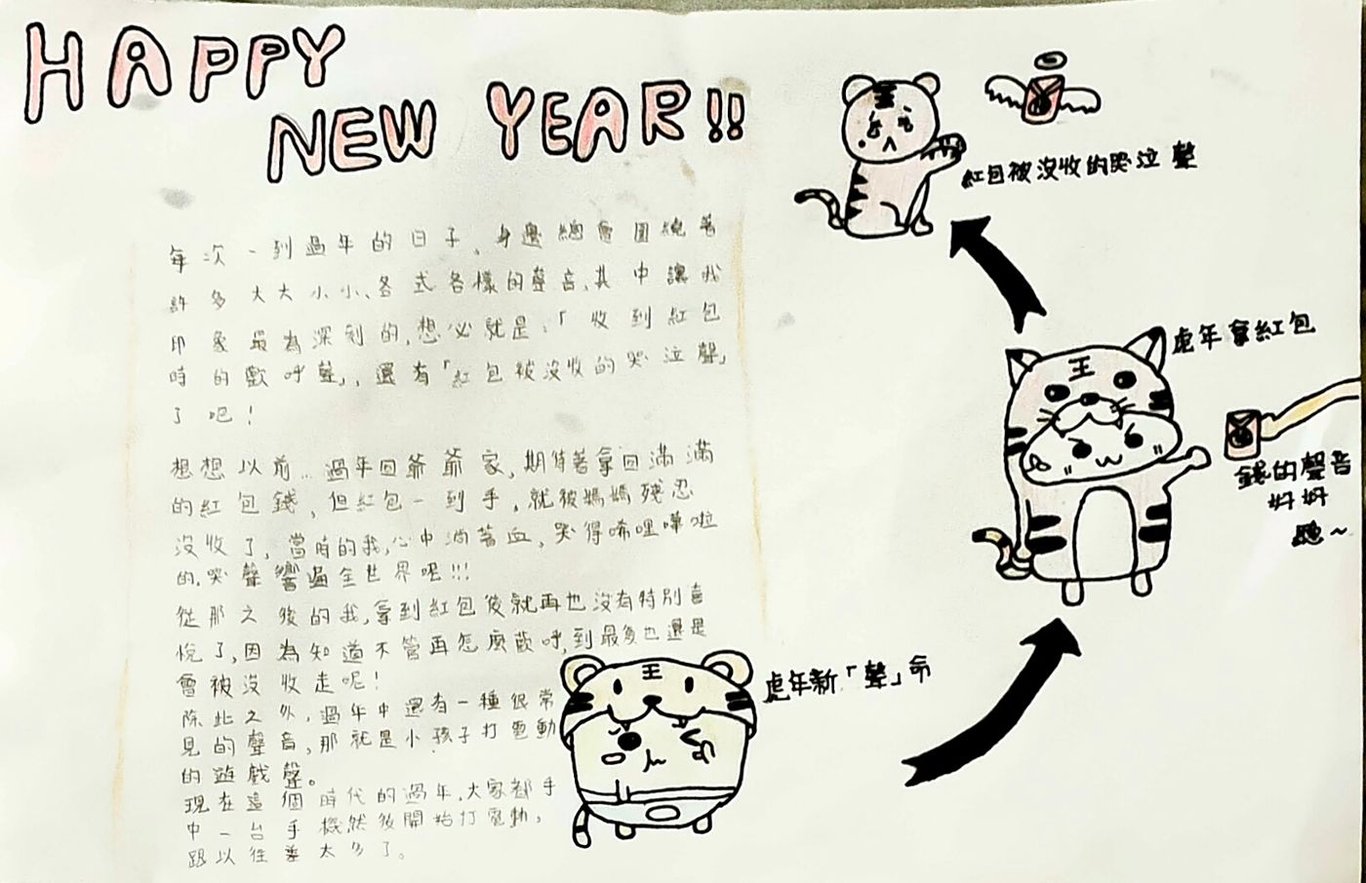 HAPPY
NEW YEAR!!
每次一到過年的日子,身邊總會圍繞著
許多大大小小、各式各樣的聲音,其中讓我
印象最為深刻的,想必就是:「收到紅包
時的歡呼聲」,還有「紅包被沒收的哭泣聲」
了吧!
想想以前…過年回爺爺家,期待著拿回滿滿
的紅包錢,但紅包一到手,就被媽媽殘忍
沒收了,當時的我,心中淌著血,哭得唏哩嘩啦
的,哭聲響遍全世界呢!!!
從那之後的我,拿到紅包後就再也沒有特別喜
悅了,因為知道不管再怎麼歡呼,到最後也還是
會被沒收走呢!
除此之外,過年中還有一種很常
見的聲音,那就是小孩子打電動
的遊戲聲。
現在這個時代的過年,大家都手
中一台手機然後開始打電動,
跟以往差太多了。
紅包被沒收的哭泣聲
虎年拿紅包
錢的聲音
好好
聽~
虎年新「聲」命
王
王
王